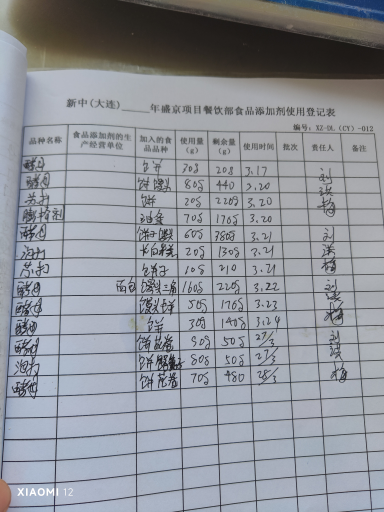 新中(大连)_____年盛京项目餐饮部食品添加剂使用登记表
编号: XZ-DL (CY) -012
品种名称 食品添加剂的生产经营单位 加入的食品品种 使用量(g) 剩余量(g) 使用时间 批次 责任人 备注
酵母 30g 20g 3.17
酵母 饼 80g 440 3.20 刘
苏打 饼 20g 220g 3.20 洪
70g 170g 3.20 梅
酵母 60g 380g 3.21 刘
泡打 20g 130g 3.21 洪
苏打 10g 210 3.21 梅
酵母 面包 160g 220g 3.22 刘
酵母 50g 170g 3.23 洪
酵母 饼 30g 140g 3.24 梅
酵母 饼 花卷 90g 50g 27/3 刘
泡打 饼 80g 50g 27/3 洪
酵母 饼 花卷 70g 480 28/3 梅
XIAOMI 12